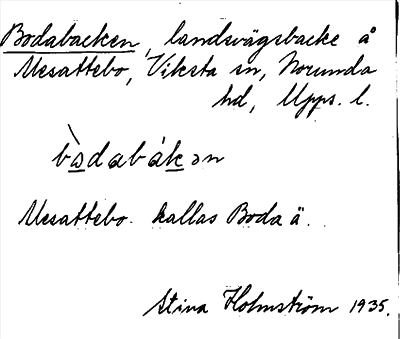 Bodabacken, landsvägsbacke å
Mesattebo, Viksta sn, Norunda
hd, Upps. l.
bòdabákən
Mesattebo kallas Boda ä.
Stina Holmström 1935.